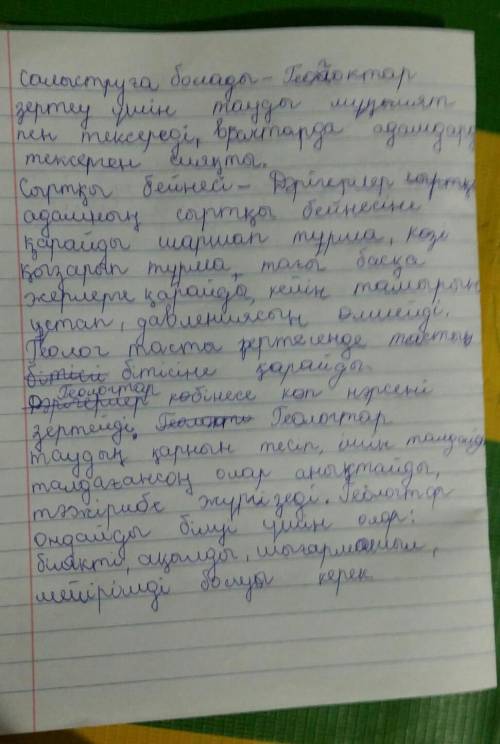 Салыструға болады - Геологтар
зертеу үшін тауды мұқият
пен тексереді, врачтарда адамдард
тексерген сияқты.
Сыртқы бейнесі - Дәрігерлер сыртқы
адамның сыртқы бейнесіне
қарайды шаршап тұрма, көзі
қызарып тұрма, тағы басқа
жерлерге қарайда, кейін тамырын
ұстап, давлениясың өлшейді.
Геолог таста зертегенде тастың
бітісі бітісіне қарайды.
Дәрігерлер Геологтар көбінесе көп нәрсені
зертейді. Геологтар
таудың қарнын тесіп, ішін талдайд
талдағансоң олар анықтайды,
тәжірибе жүргізеді. Геологтар
ондайды білуі үшін олар:
білікті, ақылды, шығармашыл,
мейірімді болуы керек